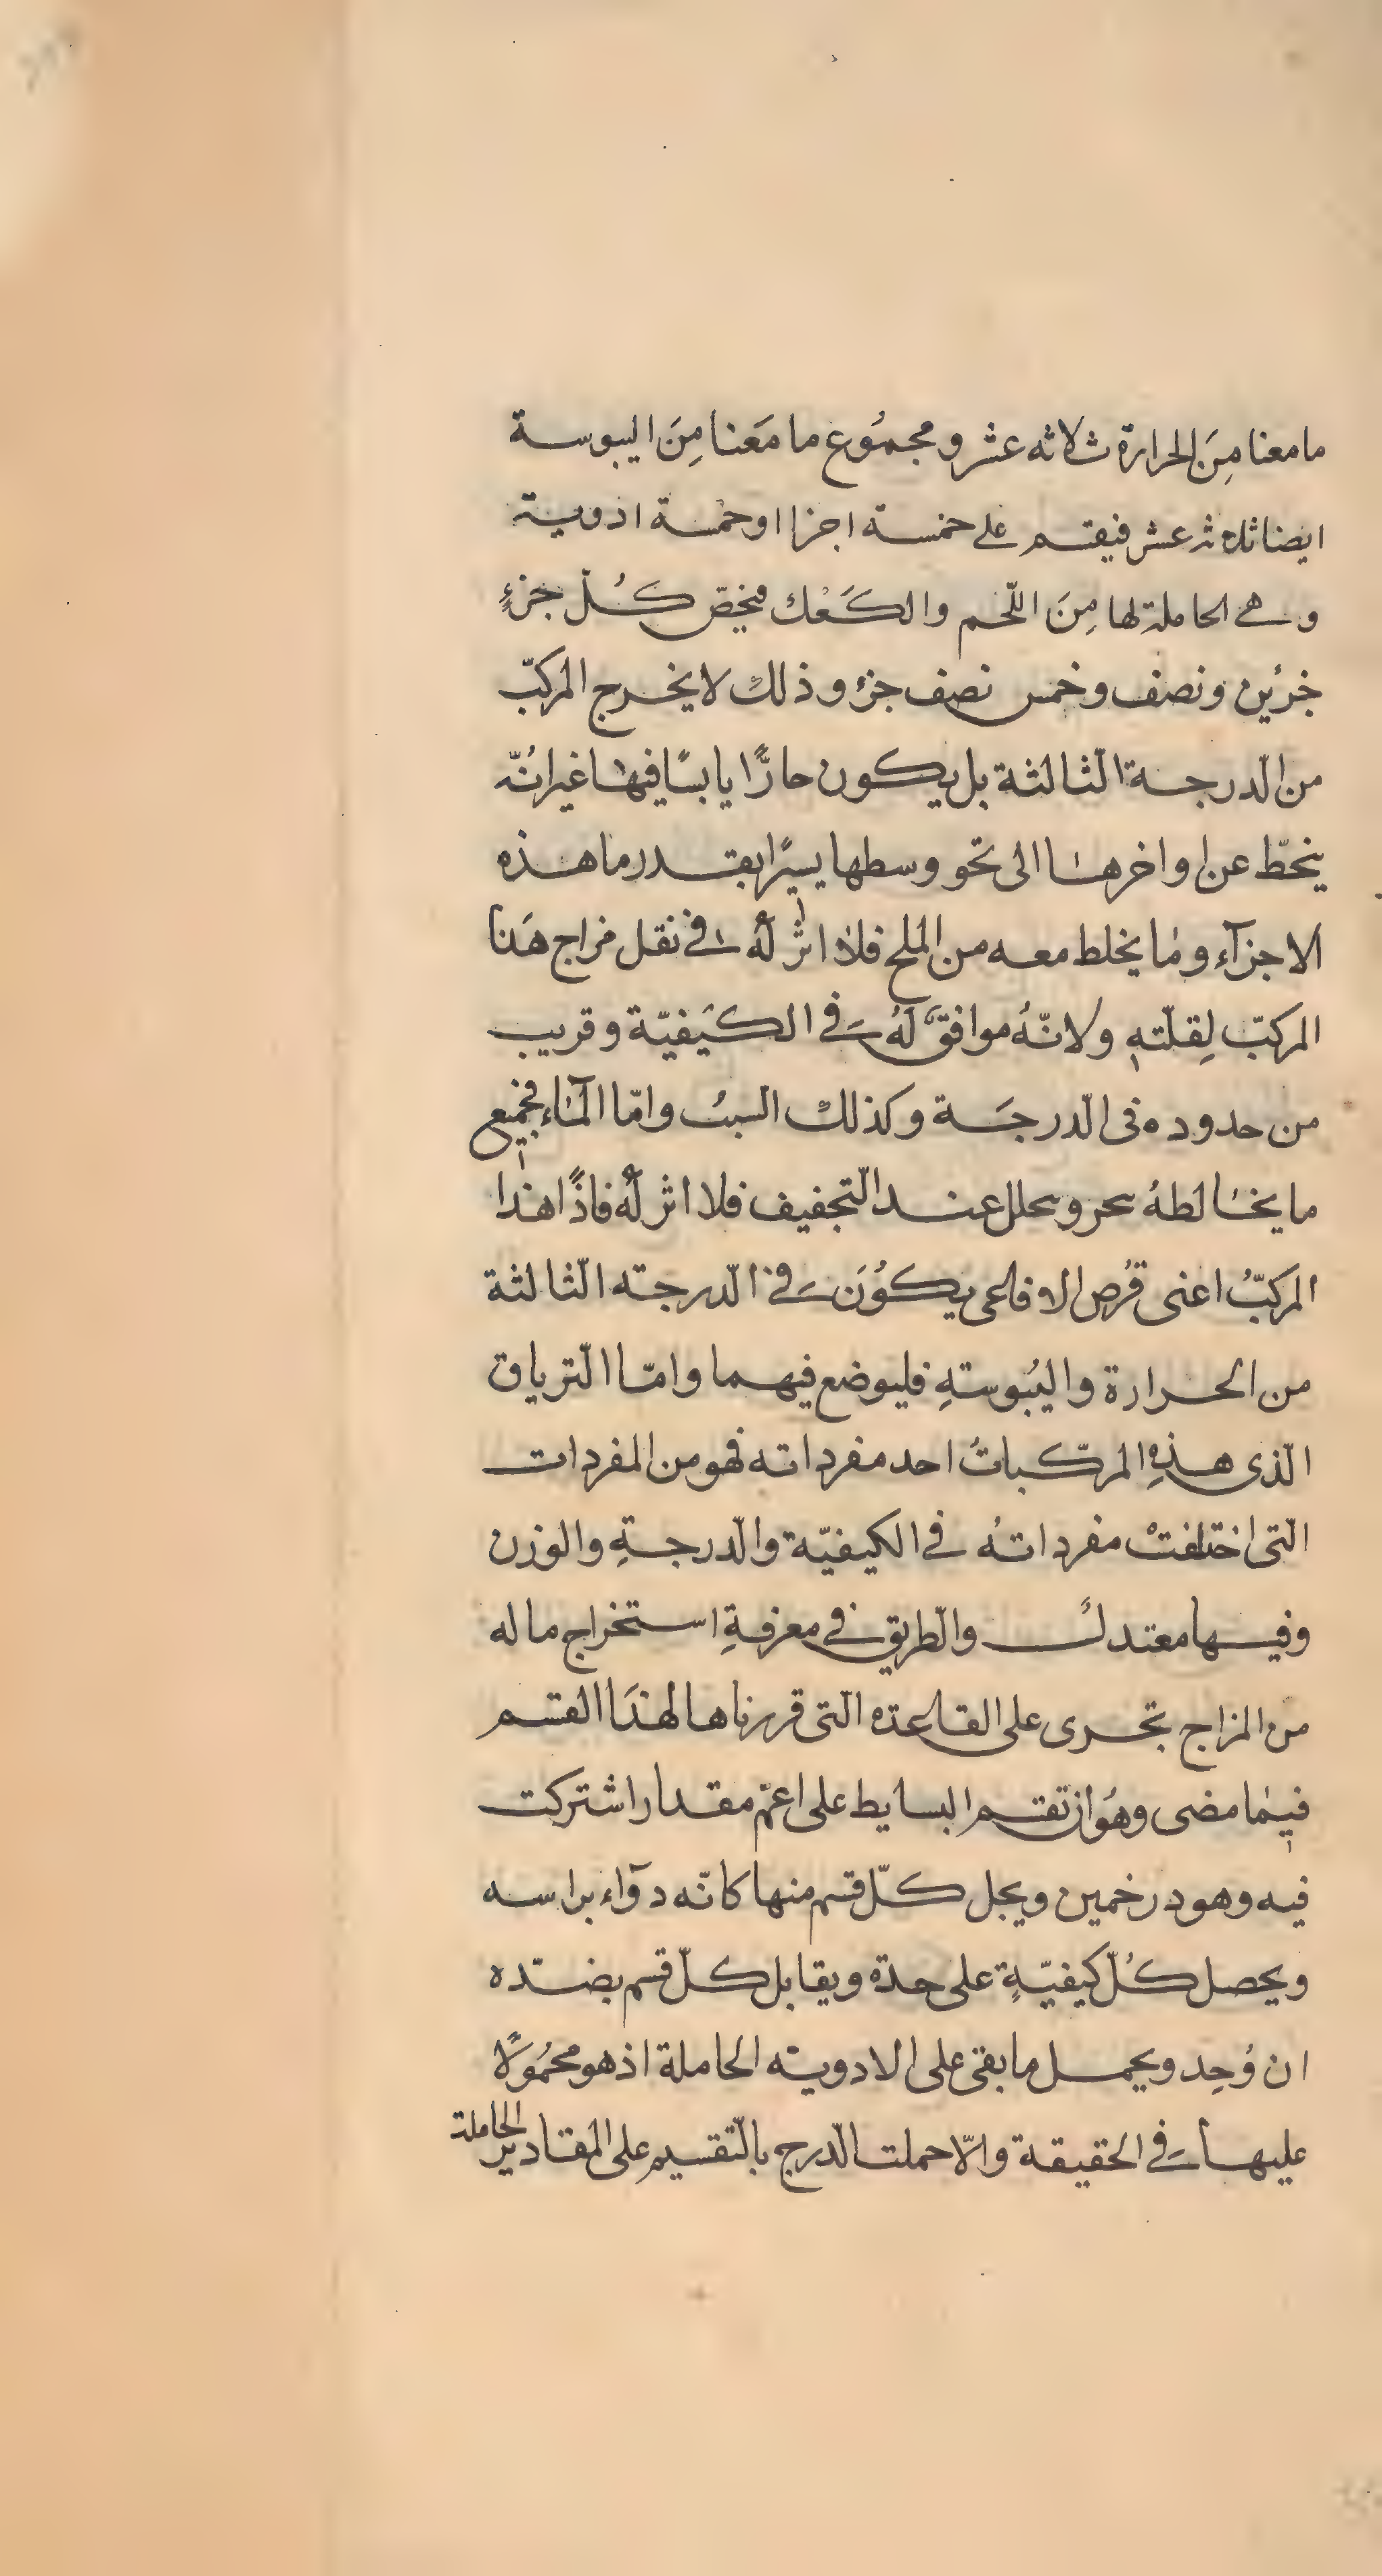 ما معنا مِنَ الحرارة ثلاثه عشر و مجمُوع ما مَعنا مِنَ اليبوسة
ايضا ثلاثه عشر فيقسم على خمسة اجزا اوخمسة ادوية
وهي الحاملة لها مِنَ اللّحم والكَعْك فيخصّ كُلّ جزءٍ
جزئين ونصف وخمس نصف جزؤ وذلكْ لا يخرج المركبّ
من الّدرجة الثالثة بل يكون حارًّا يابسًا فيها غير انُّه
ينحطّ عن اواخرها الى نحو وسطها يسيًرا بقدر ما هذه
الاجزآء وما يخلط معه من الملح فلا اثر لهُ في نقل مزاج هَذا
المركبّ لِقلّتهِ ولانّهُ موافقٌ لَهُ في الكَيفيّة وقريب
من حدوده فى الّدرجَة وكذلكْ السبت وامّا المآء فجميع
ما يخالطهُ سحر وسحلل عند الّتجفيف فلا اثر لهُ فاذًا هذا
المركبُّ اعنى قُرص الافاعى يكوُنَ في الّدرجته الثّالثة
من الحرارة واليُبوستهِ فليوضع فيهما وامّا الّترياق
الّذى هذهِ المركّباتُ احد مفرداته فهو من المفردات
الّتى اختلفتْ مفرداتهُ في الكيفيّة والّدرجةِ والوزن
وفيها معتدلٌ والّطريق في معرفةِ استخراج ماله
من المزاج تجرى على القاعدة الّتى قررناها لهذَا القسم
فيما مضى وهُوان تقسم البسايط على اعمّ مقدار اشتركت
فيه وهو درخمين ويجل كلّ قسم منها كانّه دوآء براسه
ويحصل كُلّ كيفيّةٍ على حدة ويقابل كلّ قسم بضدّه
ان وُجِد ويحمل ما بقى على الادويته الحاملة اذ هو محمُولًا
عليها في الحقيقة والّا حملت الّدرج بالّتقسيم على المقادير الحاملة